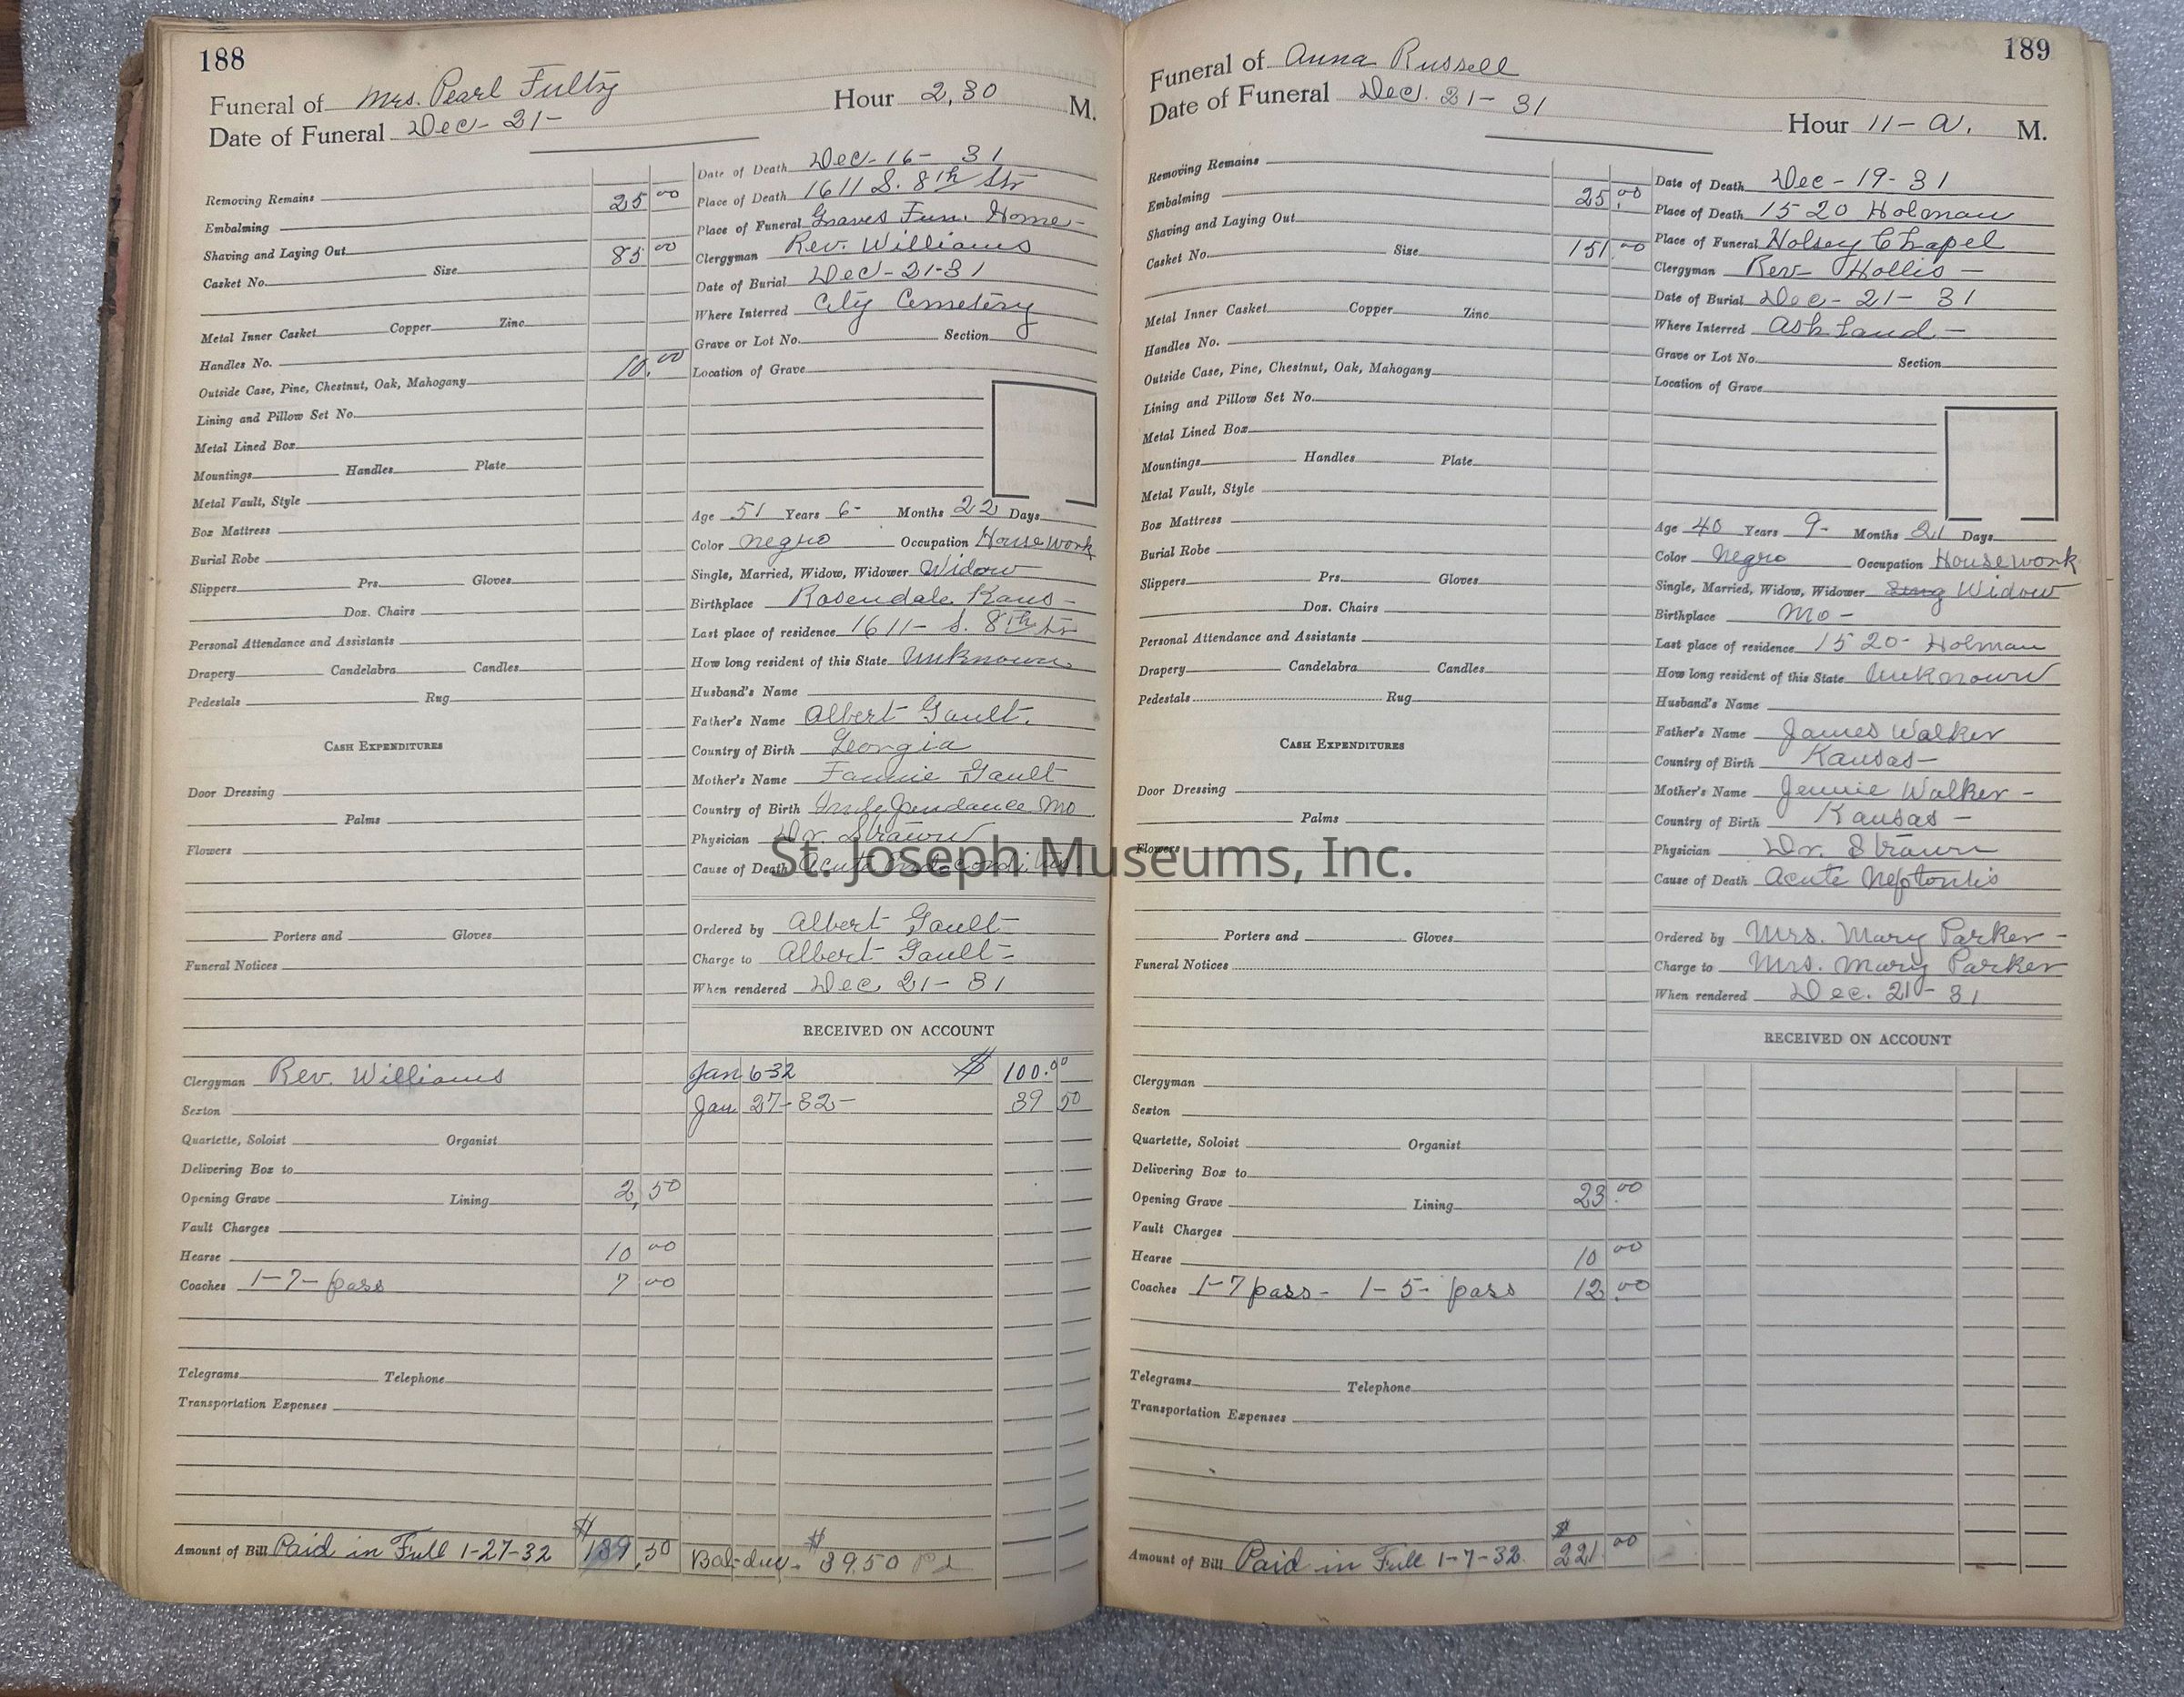 188
Funeral of Mrs. Pearl Fultz Hour 2,30 M.
Date of Funeral Dec - 21 -
Removing Remains
Embalming 25 00
Shaving and Laying Out
Casket No. Size 85 00
Metal Inner Casket Copper Zinc
Handles No.
Outside Case, Pine, Chestnut, Oak, Mahogany 10.00
Lining and Pillow Set No.
Metal Lined Box
Mountings Handles Plate
Metal Vault, Style
Box Mattress
Burial Robe
Slippers Prs. Gloves
Doz. Chairs
Personal Attendance and Assistants
Drapery Candelabra Candles
Pedestals Rug
CASH EXPENDITURES
Door Dressing
Palms
Flowers
Porters and Gloves
Funeral Notices
Clergyman Rev. Williams
Sexton
Quartette, Soloist Organist
Delivering Box to
Opening Grave Lining 2, 50
Vault Charges
Hearse 10 00
Coaches 1-7- pass 7 00
Telegrams Telephone
Transportation Expenses
Amount of Bill Paid in Full 1-27-32 $139.50
Date of Death Dec - 16 - 31
Place of Death 1611 S. 8th Str
Place of Funeral Graves Fun. Home -
Clergyman Rev. Williams
Date of Burial Dec - 21 - 31
Where Interred City Cemetery
Grave or Lot No. Section
Location of Grave
Age 51 Years 6 - Months 22 Days
Color negro Occupation House work
Single, Married, Widow, Widower Widow
Birthplace Rosendale Kans -
Last place of residence 1611 - S. 8th Str
How long resident of this State unknown
Husband's Name
Father's Name Albert Gault.
Country of Birth Georgia
Mother's Name Fannie Gault
Country of Birth Independance Mo
Physician Dr Strawn
Cause of Death Acute
Ordered by Albert Gault
Charge to Albert Gault -
When rendered Dec. 21 - 31
RECEIVED ON ACCOUNT
Jan 6-32 $ 100.00
Jan 27-32 - 39 50
Bal-due - $39.50 Pd
St. Joseph Museums, Inc.
189
Funeral of Anna Russell
Date of Funeral Dec. 21 - 31 Hour 11 - a. M.
Removing Remains
Embalming 25.00
Shaving and Laying Out
Casket No. Size 151.00
Metal Inner Casket Copper Zinc
Handles No.
Outside Case, Pine, Chestnut, Oak, Mahogany
Lining and Pillow Set No.
Metal Lined Box
Mountings Handles Plate
Metal Vault, Style
Box Mattress
Burial Robe
Slippers Prs. Gloves
Doz. Chairs
Personal Attendance and Assistants
Drapery Candelabra Candles
Pedestals Rug
CASH EXPENDITURES
Door Dressing
Palms
Flowers
Porters and Gloves
Funeral Notices
Clergyman
Sexton
Quartette, Soloist Organist
Delivering Box to
Opening Grave Lining 23.00
Vault Charges
Hearse 10 00
Coaches 1-7 pass - 1-5- pass 12.00
Telegrams Telephone
Transportation Expenses
Amount of Bill Paid in Full 1-7-32. $221.00
Date of Death Dec - 19 - 31
Place of Death 1520 Holman
Place of Funeral Holsey Chapel
Clergyman Rev - Hollis -
Date of Burial Dec - 21 - 31
Where Interred Ashland -
Grave or Lot No. Section
Location of Grave
Age 40 Years 9 - Months 21 Days
Color Negro Occupation House work
Single, Married, Widow, Widower Sing Widow
Birthplace Mo -
Last place of residence 1520 - Holman
How long resident of this State Unknown
Husband's Name
Father's Name James Walker
Country of Birth Kansas -
Mother's Name Jennie Walker -
Country of Birth Kansas -
Physician Dr. Strawn
Cause of Death Acute
Ordered by Mrs. Mary Parker -
Charge to Mrs. Mary Parker
When rendered Dec. 21 - 31
RECEIVED ON ACCOUNT